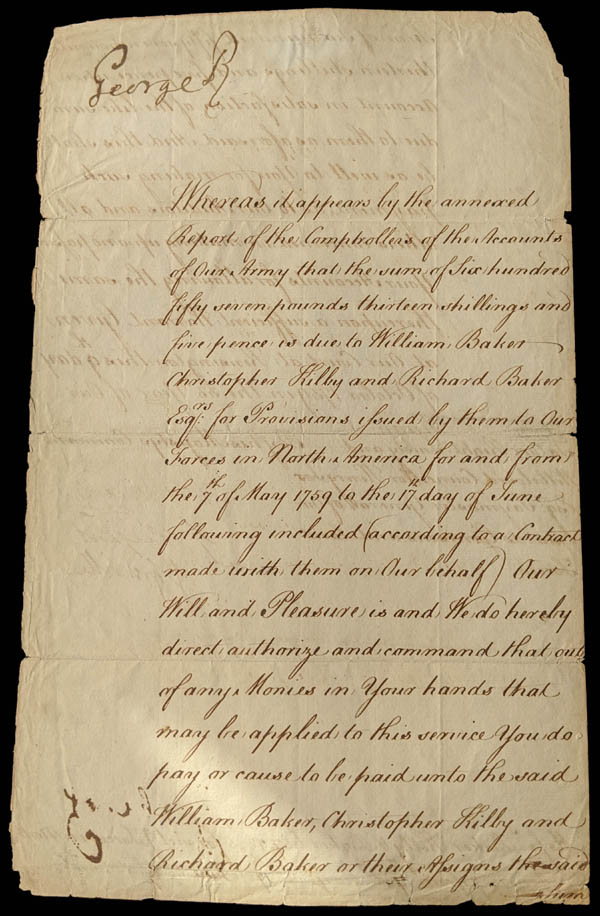 George R
Whereas it appears by the annexed
Report of the Comptrollers of the Accounts
of Our Army that the sum of Six hundred
fifty seven pounds thirteen shillings and
five pence is due to William Baker
Christopher Kilby and Richard Baker
Esqrs. for Provisions issued by them to Our
Forces in North America for and from
the 7th of May 1759 to the 17th day of June
following included (according to a Contract
made with them on Our behalf) Our
Will and Pleasure is and We do hereby
direct authorize and command that out
of any Monies in Your hands that
may be applied to this service You do
pay or cause to be paid unto the said
William Baker, Christopher Kilby and
Richard Baker or their Assigns the said
sum